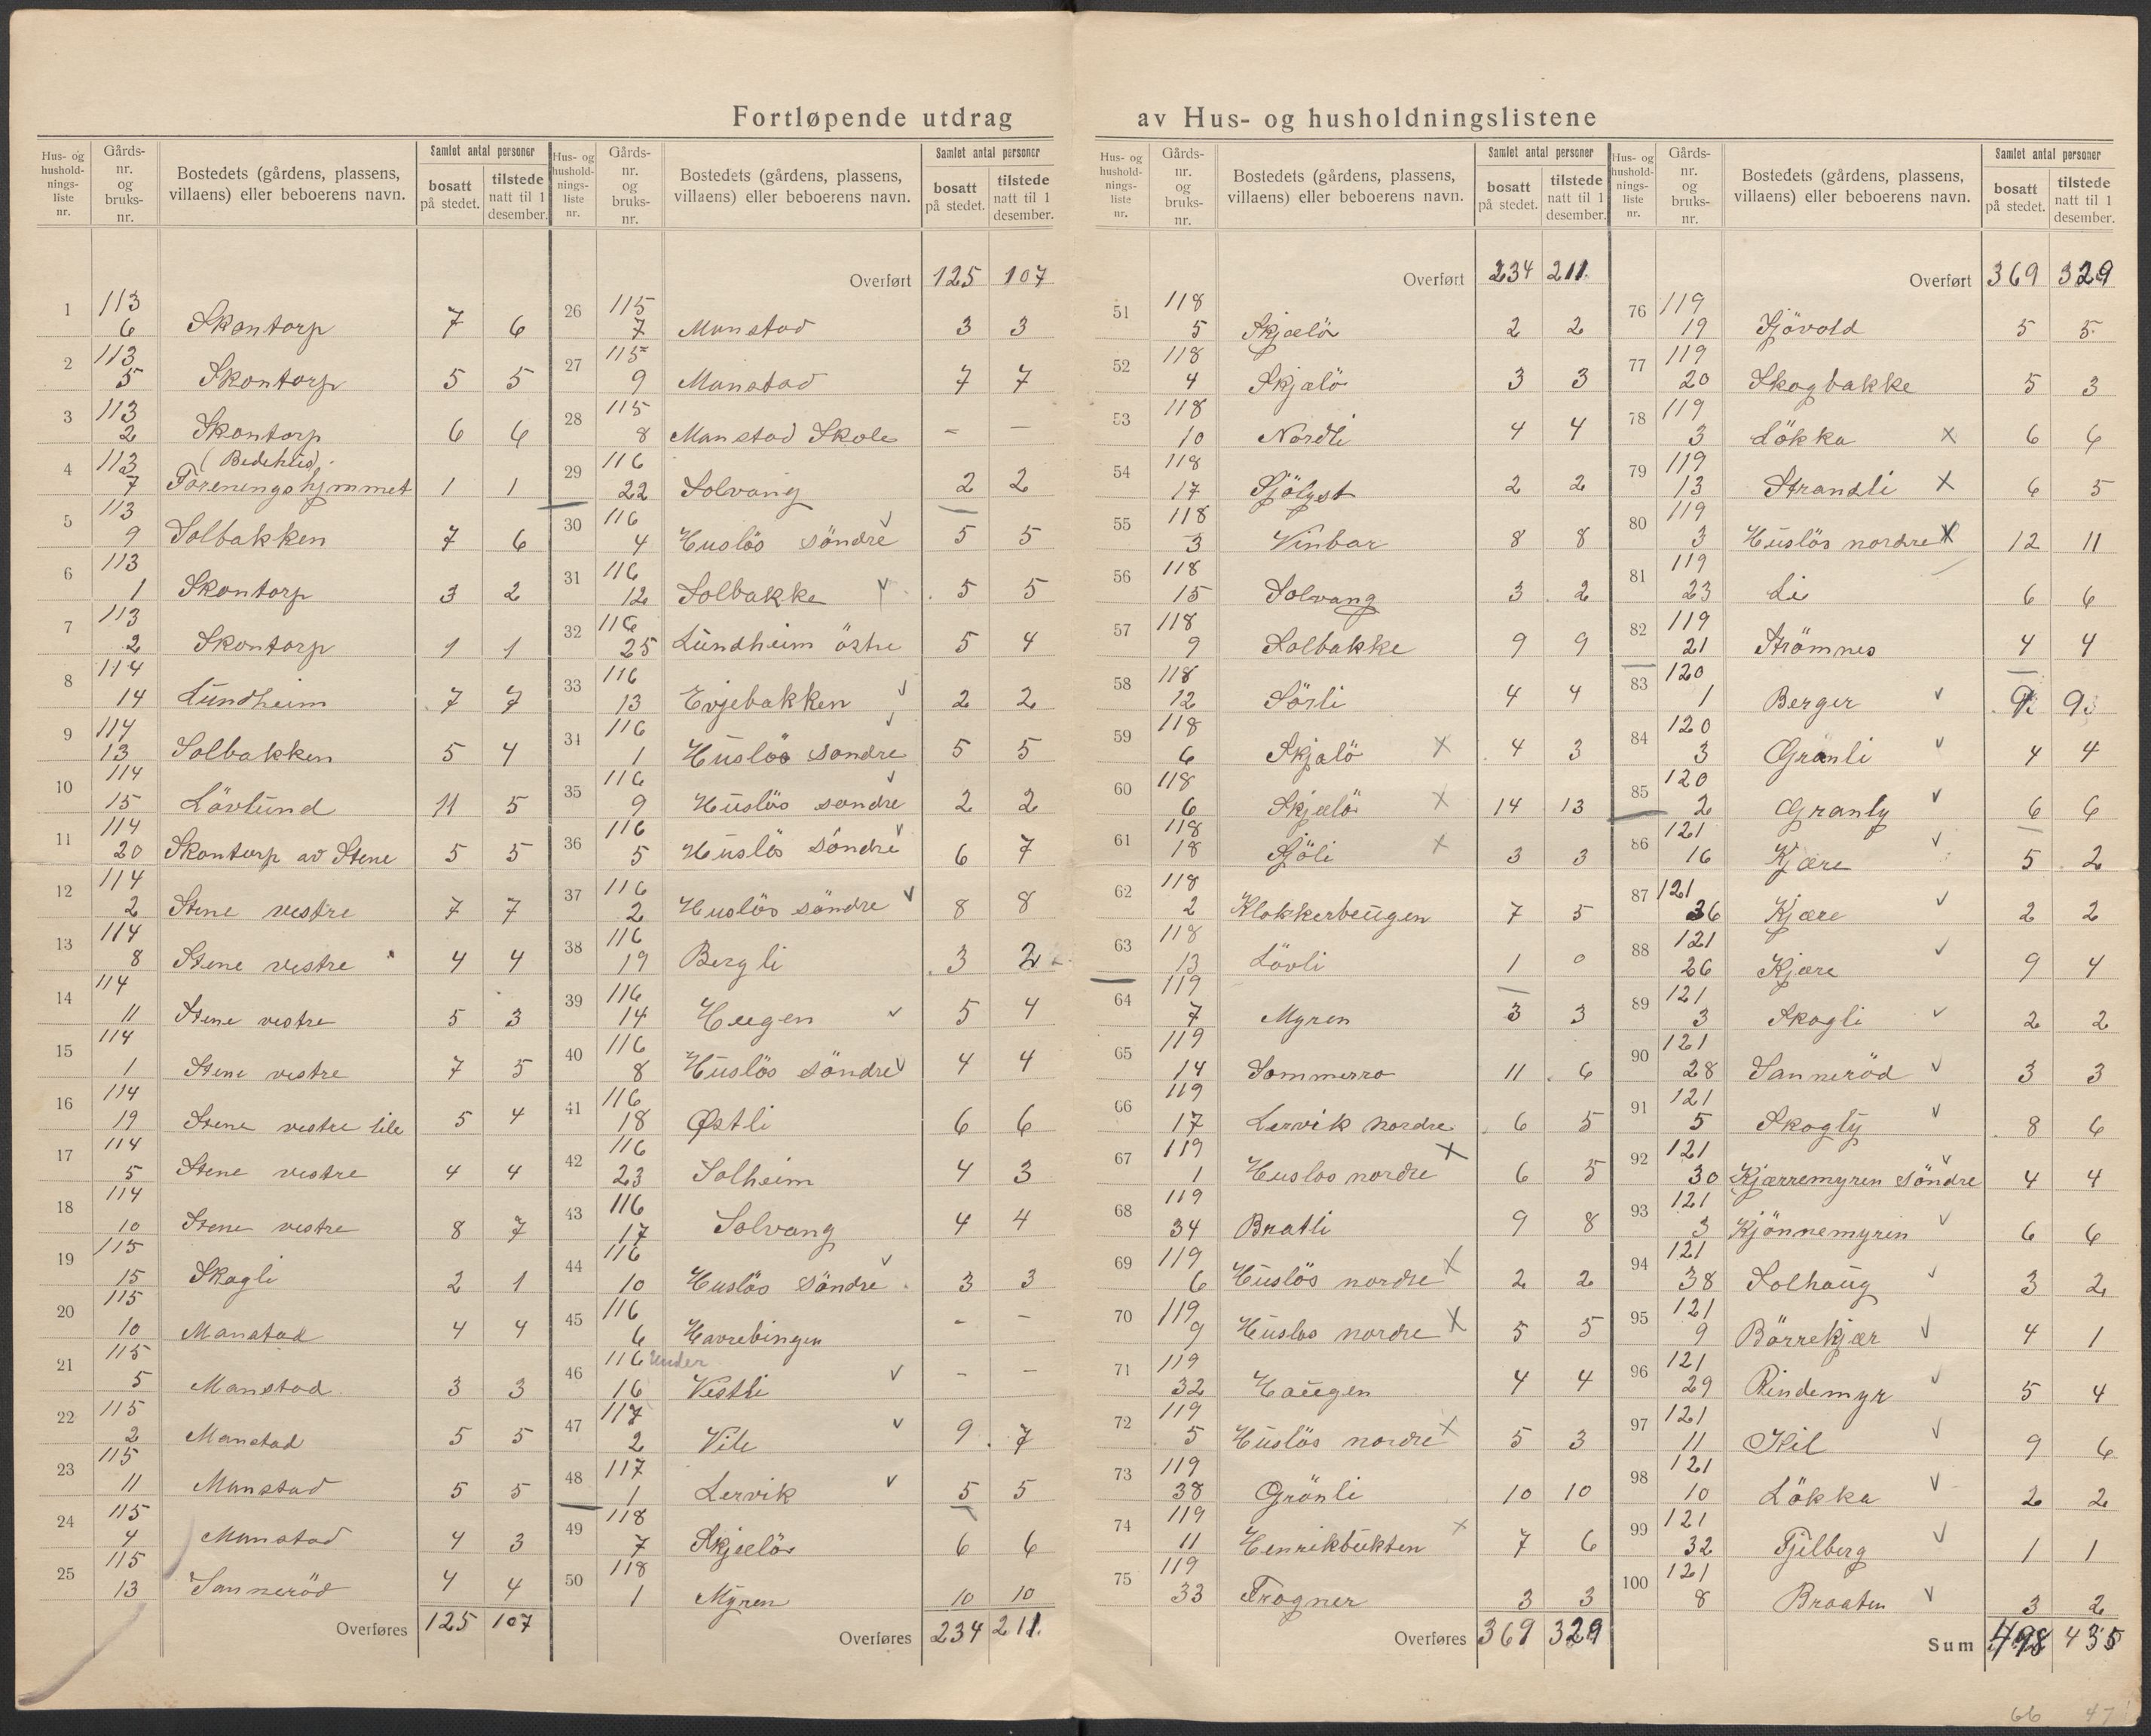 Fortløpende utdrag av Hus- og husholdningslistene
Hus- og husholdningsliste nr. Gårds-nr. og bruks-nr. Bostedets (gårdens, plassens, villaens) eller beboerens navn. Samlet antal personer bosatt på stedet. tilstede natt til 1 desember.
1 113 6 Skontorp 7 6
2 113 5 Skontorp 5 5
3 113 2 Skontorp 6 6
4 113 7 (Bedehus) Foreningshjmmet 1 1
5 113 9 Solbakken 7 6
6 113 1 Skontorp 3 2
7 113 2 Skontorp 1 1
8 114 14 Lundheim 7 7
9 114 13 Solbakken 5 4
10 114 15 Lövlund 11 5
11 114 20 Skontorp av Stene 5 5
12 114 2 Stene vestre 7 7
13 114 8 Stene vestre 4 4
14 114 11 Stene vestre 5 3
15 114 1 Stene vestre 7 5
16 114 19 Stene vestre lile 5 4
17 114 5 Stene vestre 4 4
18 114 10 Stene vestre 8 7
19 115 15 Skogli 2 1
20 115 10 Manstad 4 4
21 115 5 Manstad 3 3
22 115 2 Manstad 5 5
23 115 11 Manstad 5 5
24 115 4 Manstad 4 3
25 115 13 Sanneröd 4 4
Overføres 125 107
Hus- og husholdningsliste nr. Gårds-nr. og bruks-nr. Bostedets (gårdens, plassens, villaens) eller beboerens navn. Samlet antal personer bosatt på stedet. tilstede natt til 1 desember.
Overført 125 107
26 115 7 Manstad 3 3
27 115 9 Manstad 7 7
28 115 8 Manstad Skole - -
29 116 22 Solvang 2 2
30 116 4 Huslös söndre 5 5
31 116 12 Solbakke 5 5
32 116 25 Lundheim östre 5 4
33 116 13 Evjebakken 2 2
34 116 1 Huslös söndre 5 5
35 116 9 Huslös söndre 2 2
36 116 5 Huslös söndre 6 7
37 116 2 Huslös söndre 8 8
38 116 19 Bergli 3 2
39 116 14 Haugen 5 4
40 116 8 Huslös söndre 4 4
41 116 18 Østli 6 6
42 116 23 Solheim 4 3
43 116 17 Solvang 4 4
44 116 10 Huslös Söndre 3 3
45 116 6 Havrebingen - -
46 116 under 16 Vestli - -
47 117 2 Vile 9 7
48 117 1 Lervik 5 5
49 118 7 Skjælör 6 6
50 118 1 Myren 10 10
Overføres 234 211
Hus- og husholdningsliste nr. Gårds-nr. og bruks-nr. Bostedets (gårdens, plassens, villaens) eller beboerens navn. Samlet antal personer bosatt på stedet. tilstede natt til 1 desember.
Overført 234 211
51 118 5 Skjælö 2 2
52 118 4 Skjælö 3 3
53 118 10 Nordli 4 4
54 118 17 Sjölyst 2 2
55 118 3 Vinbar 8 8
56 118 15 Solvang 3 2
57 118 9 Solbakke 9 9
58 118 12 Sörli 4 4
59 118 6 Skjælö X 4 3
60 118 6 Skjælö X 14 13
61 118 18 Sjöli X 3 3
62 118 2 Klokkerhaugen 7 5
63 118 13 Lövli 1 0
64 119 7 Myren 3 3
65 119 14 Sommerro 11 6
66 119 17 Lervik nordre 6 5
67 119 1 Huslos nordre X 6 5
68 119 34 Bratli 9 8
69 119 6 Huslös nordre X 2 2
70 119 9 Huslos nordre X 5 5
71 119 32 Haugen 4 4
72 119 5 Huslös nordre X 5 3
73 119 38 Grönli 10 10
74 119 11 Henrikbukten X 7 6
75 119 33 Frogner 3 3
Overføres 369 329
Hus- og husholdningsliste nr. Gårds-nr. og bruks-nr. Bostedets (gårdens, plassens, villaens) eller beboerens navn. Samlet antal personer bosatt på stedet. tilstede natt til 1 desember.
Overført 369 329
76 119 19 Sjövold 5 5
77 119 20 Skogbakke 5 3
78 119 3 Lökka X 6 6
79 119 13 Strandli X 6 5
80 119 3 Huslös nordre X 12 11
81 119 23 Li 6 6
82 119 21 Strömnes 4 4
83 120 1 Berger 9 9
84 120 3 Granli 4 4
85 120 2 Granly 6 6
86 121 16 Kjære 5 2
87 121 36 Kjære 2 2
88 121 26 Kjære 9 4
89 121 3 Skogli 2 2
90 121 28 Sanneröd 3 3
91 121 5 Skogly 8 6
92 121 30 Kjærremyren Söndre 4 4
93 121 3 Kjönnemyren 6 6
94 121 38 Solhaug 3 2
95 121 9 Börrekjær 4 1
96 121 29 Rindemyr 5 4
97 121 11 Kil 9 6
98 121 10 Lökka 2 2
99 121 32 Fjelberg 1 1
100 121 8 Braaten 3 2
Sum 498 435
66 47